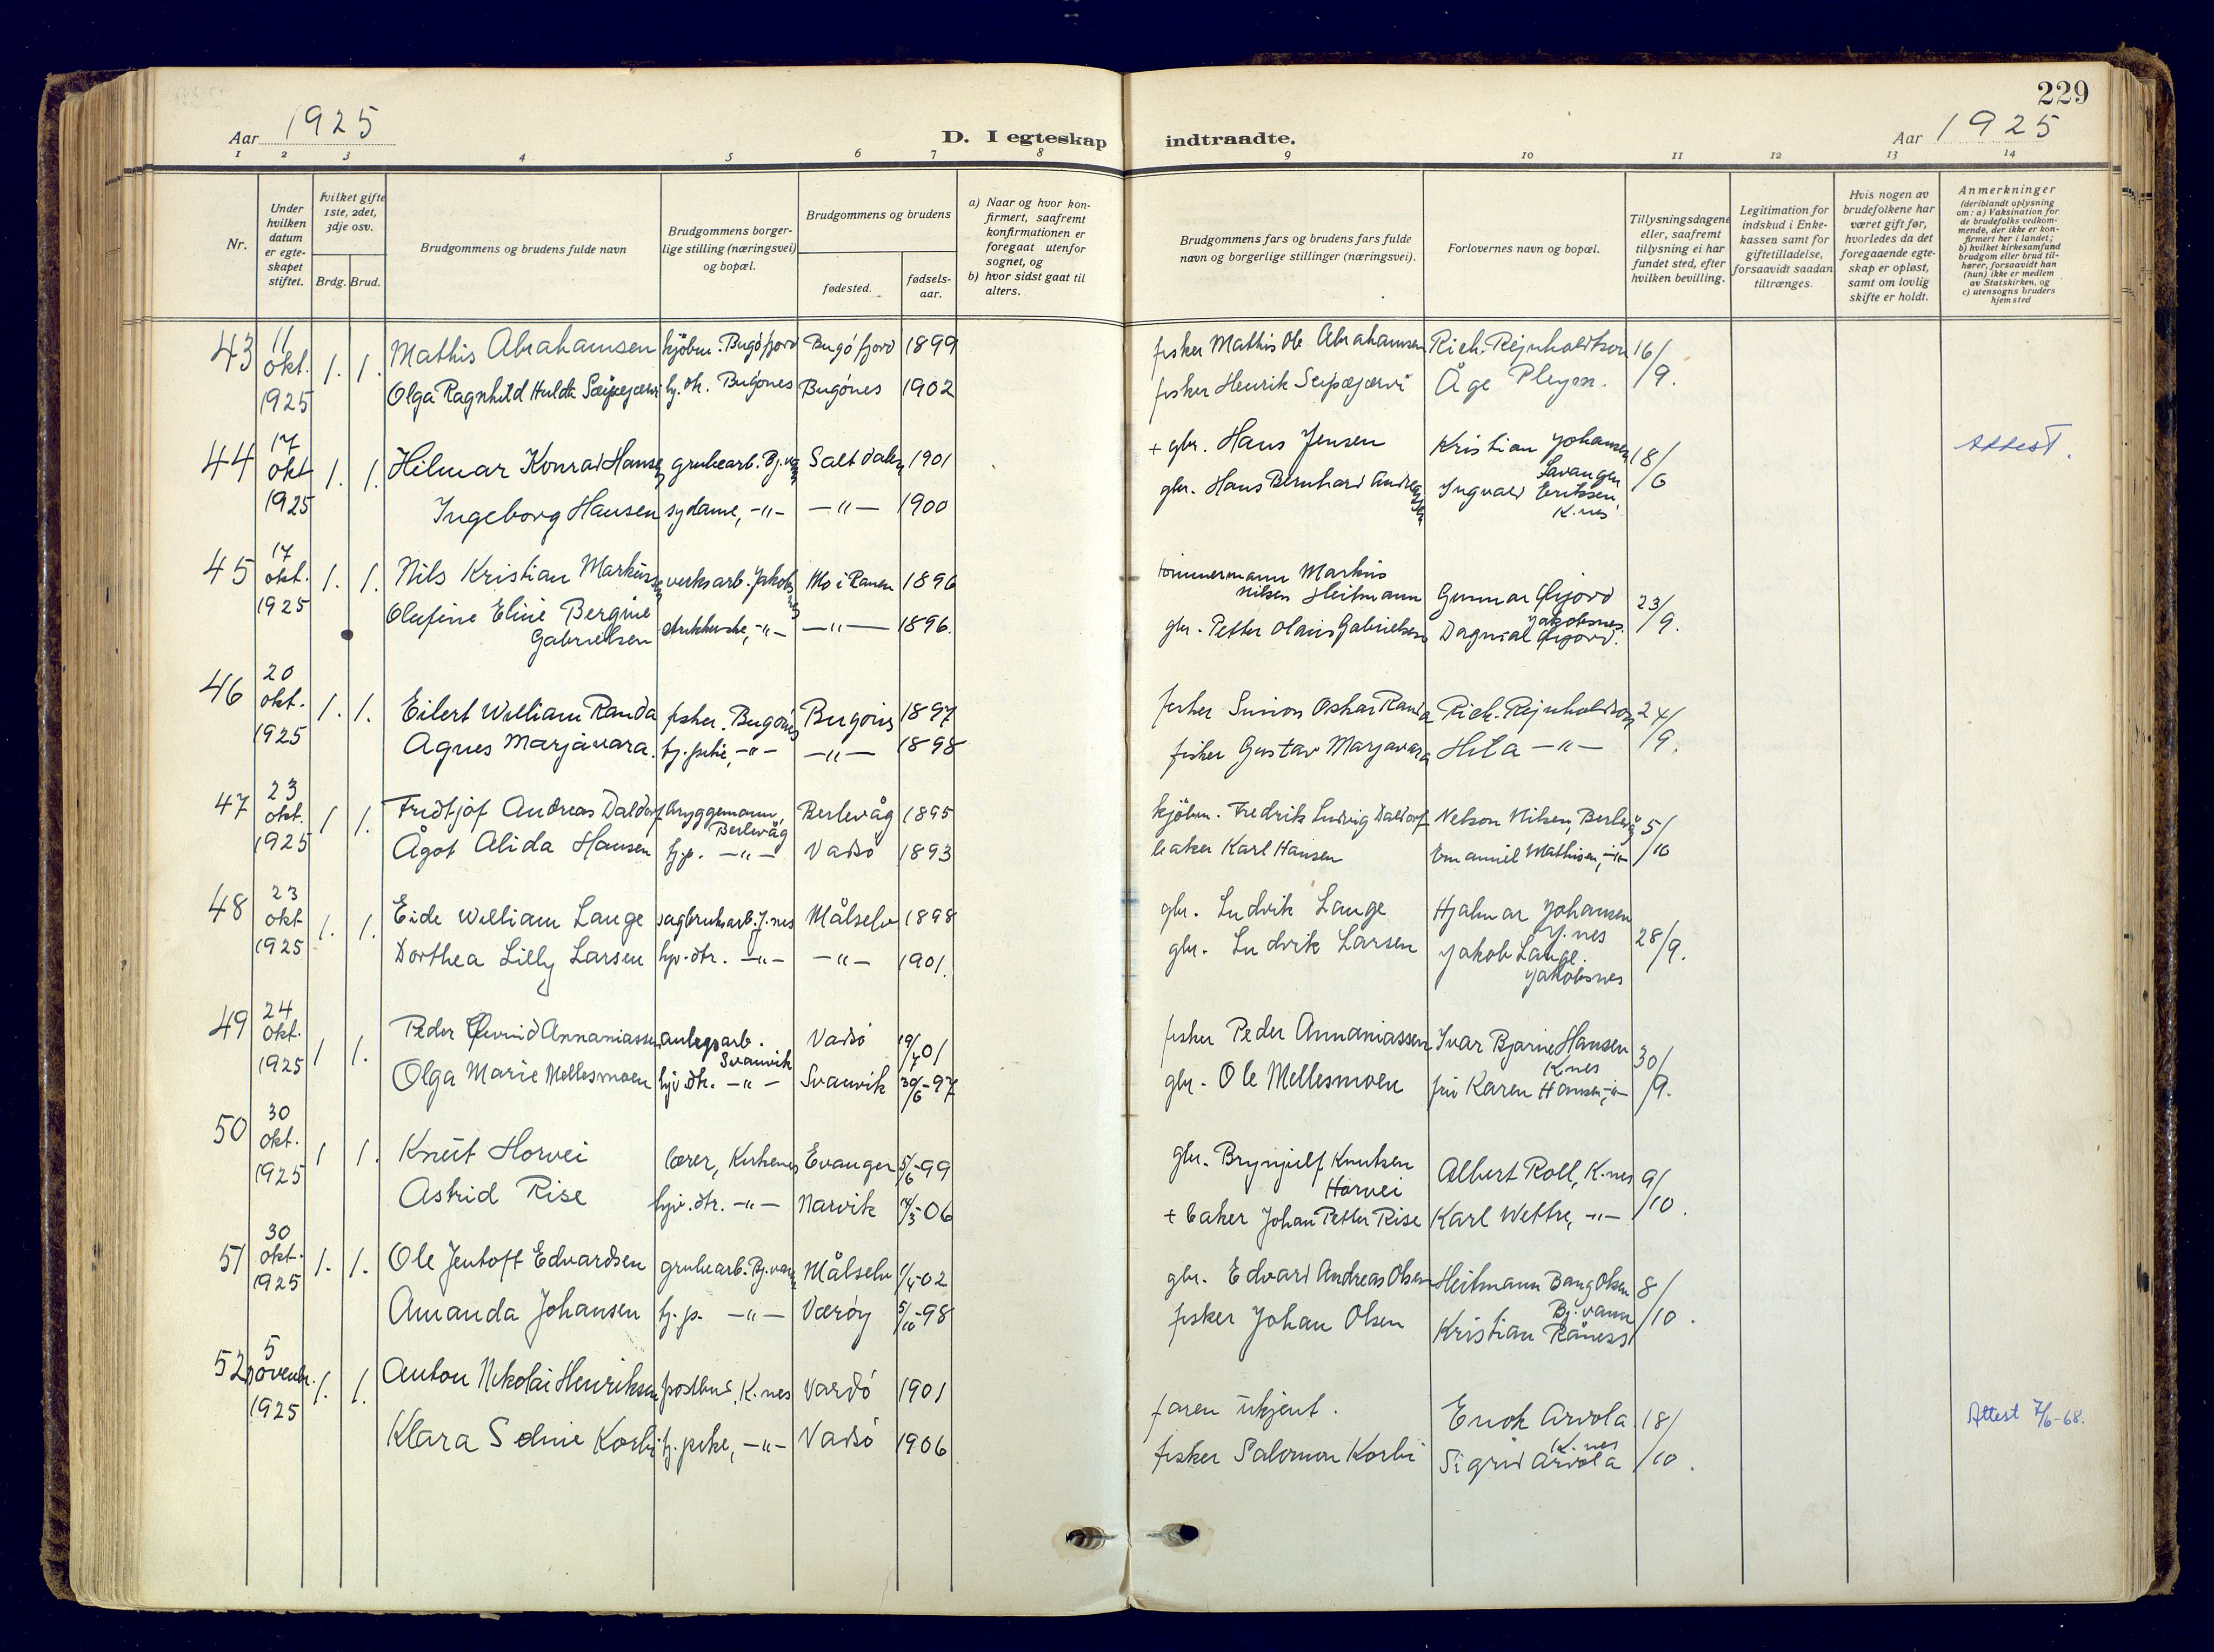 229
Aar 1925
D. I egteskap indtraadte.
Aar 1925
1 2 3 4 5 6 7 8 9 10 11 12 13 14
Nr.
Under hvilken datum er egteskapet stiftet.
hvilket gifte 1ste, 2det, 3dje osv.
Brdg. Brud.
Brudgommens og brudens fulde navn
Brudgommens borgerlige stilling (næringsvei) og bopæl.
Brudgommens og brudens
fødested.
fødselsaar.
a) Naar og hvor konfirmert, saafremt konfirmationen er foregaat utenfor sognet, og
b) hvor sidst gaat til alters.
Brudgommens fars og brudens fars fulde navn og borgerlige stillinger (næringsvei).
Forlovernes navn og bopæl.
Tillysningsdagene eller, saafremt tillysning ei har fundet sted, efter hvilken bevilling.
Legitimation for indskud i Enkekassen samt for giftetilladelse, forsaavidt saadan tiltrænges.
Hvis nogen av brudefolkene har været gift før, hvorledes da det foregaaende egteskap er opløst, samt om lovlig skifte er holdt.
Anmerkninger (deriblandt oplysning om: a) Vaksination for de brudefolks vedkommende, der ikke er konfirmert her i landet; b) hvilket kirkesamfund brudgom eller brud tilhører, forsaavidt han (hun) ikke er medlem av Statskirken, og c) utensogns bruders hjemsted
43 11 okt. 1925 1. 1. Mathis Abrahamsen kjøbm. Bugøfjord Bugøfjord 1899 fisker Mathis Ole Abrahamsen Rich. Rejnholdtson 16/9.
Olga Ragnhild Hulda hj. dtr. Bugønes Bugønes 1902 fisker Henrik Seipæjærvi Åge
44 17 okt 1925 1. 1. Hilmar Konrad Hansen grubearb. Bj.vann Saltdalen 1901 + gbr. Hans Jensen Kristian Johansen 18/6 Attest.
Ingeborg Hansen sydame, -"- -"- 1900 gbr. Hans Bernhard Andreassen Ingvald Eriksen K.nes
45 17 okt. 1925 1. 1. Nils Kristian Markussen verksarb. Jakobsnes Mo i Ranen 1896 tømmermann Markus Nilsen Heitmann Gunnar Gjord Jakobsnes 23/9.
Olufine Eline Bergine Gabrielsen -"- -"- 1896. gbr. Petter Olaus Gabrielsen
46 20 okt. 1925 1. 1. Eilert William Randa fisker. Bugønes Bugønes 1897 fisker Simon Oskar Randa Rich. Rejnholdtson 24/9.
Agnes Marjavara. hj. pike, -"- -"- 1898 fisker Gustav Marjavara Hilda -"-
47 23 okt. 1925 1 1. Fridtjof Andreas Daldorf bryggemann, Berlevåg Berlevåg 1895 kjøbm. Fredrik Ludvig Daldorf Nelson Nilsen, Berlevåg 5/10
Ågot Alida Hansen hj.p. -"- Vadsø 1893 baker Karl Hansen Emanuel Mathisen, -"-
48 23 okt 1925 1. 1. Eide William Lange sagbruksarb. J.nes Målselv 1898 gbr. Ludvik Lange Hjalmar Johansen J.nes 28/9.
Dorthea Lilly Larsen hjv. dtr. -"- -"- 1901. gbr. Ludvik Larsen Jakob Lange. Jakobsnes
49 24 okt. 1925 1 1. Peder Øivind Annaniassen anlegsarb. Svanvik Vadsø 19/7 01 fisker Peder Annaniassen Ivar Bjarne Hansen K.nes 30/9.
Olga Marie Mellesmoen hjv. dtr. -"- Svanvik 30/6-97 gbr. Ole Mellesmoen fru Karen Hansen, -"-
50 30 okt. 1925 1 1. Knut Horvei lærer, Kirkenes Evanger 5/6-99 gbr. Brynjulf Knutsen Horvei Albert Roll, K.nes 9/10.
Astrid Rise hjv. dtr. -"- Narvik 14/3-06 + baker Johan Petter Rise Karl Wettre, -"-
51 30 okt. 1925 1. 1. Ole Jentoft Edvardsen grubearb. Bj.vann Målselv 1/4-02 gbr. Edvard Andreas Olsen Heitmann Bang Olsen Bj.vann 8/10.
Amanda Johansen hj.p. -"- Værøy 5/10-98 fisker Johan Olsen Kristian Råness
52 5 novembr. 1925 1. 1. Anton Nikolai Henriksen postbud, K.nes Vardø 1901 faren ukjent. Enok Arvola K.nes 18/10. Attest 7/6-68.
Klara Seline Korbi hj. pike, -"- Vadsø 1906 fisker Salomon Korbi Sigrid Arvola